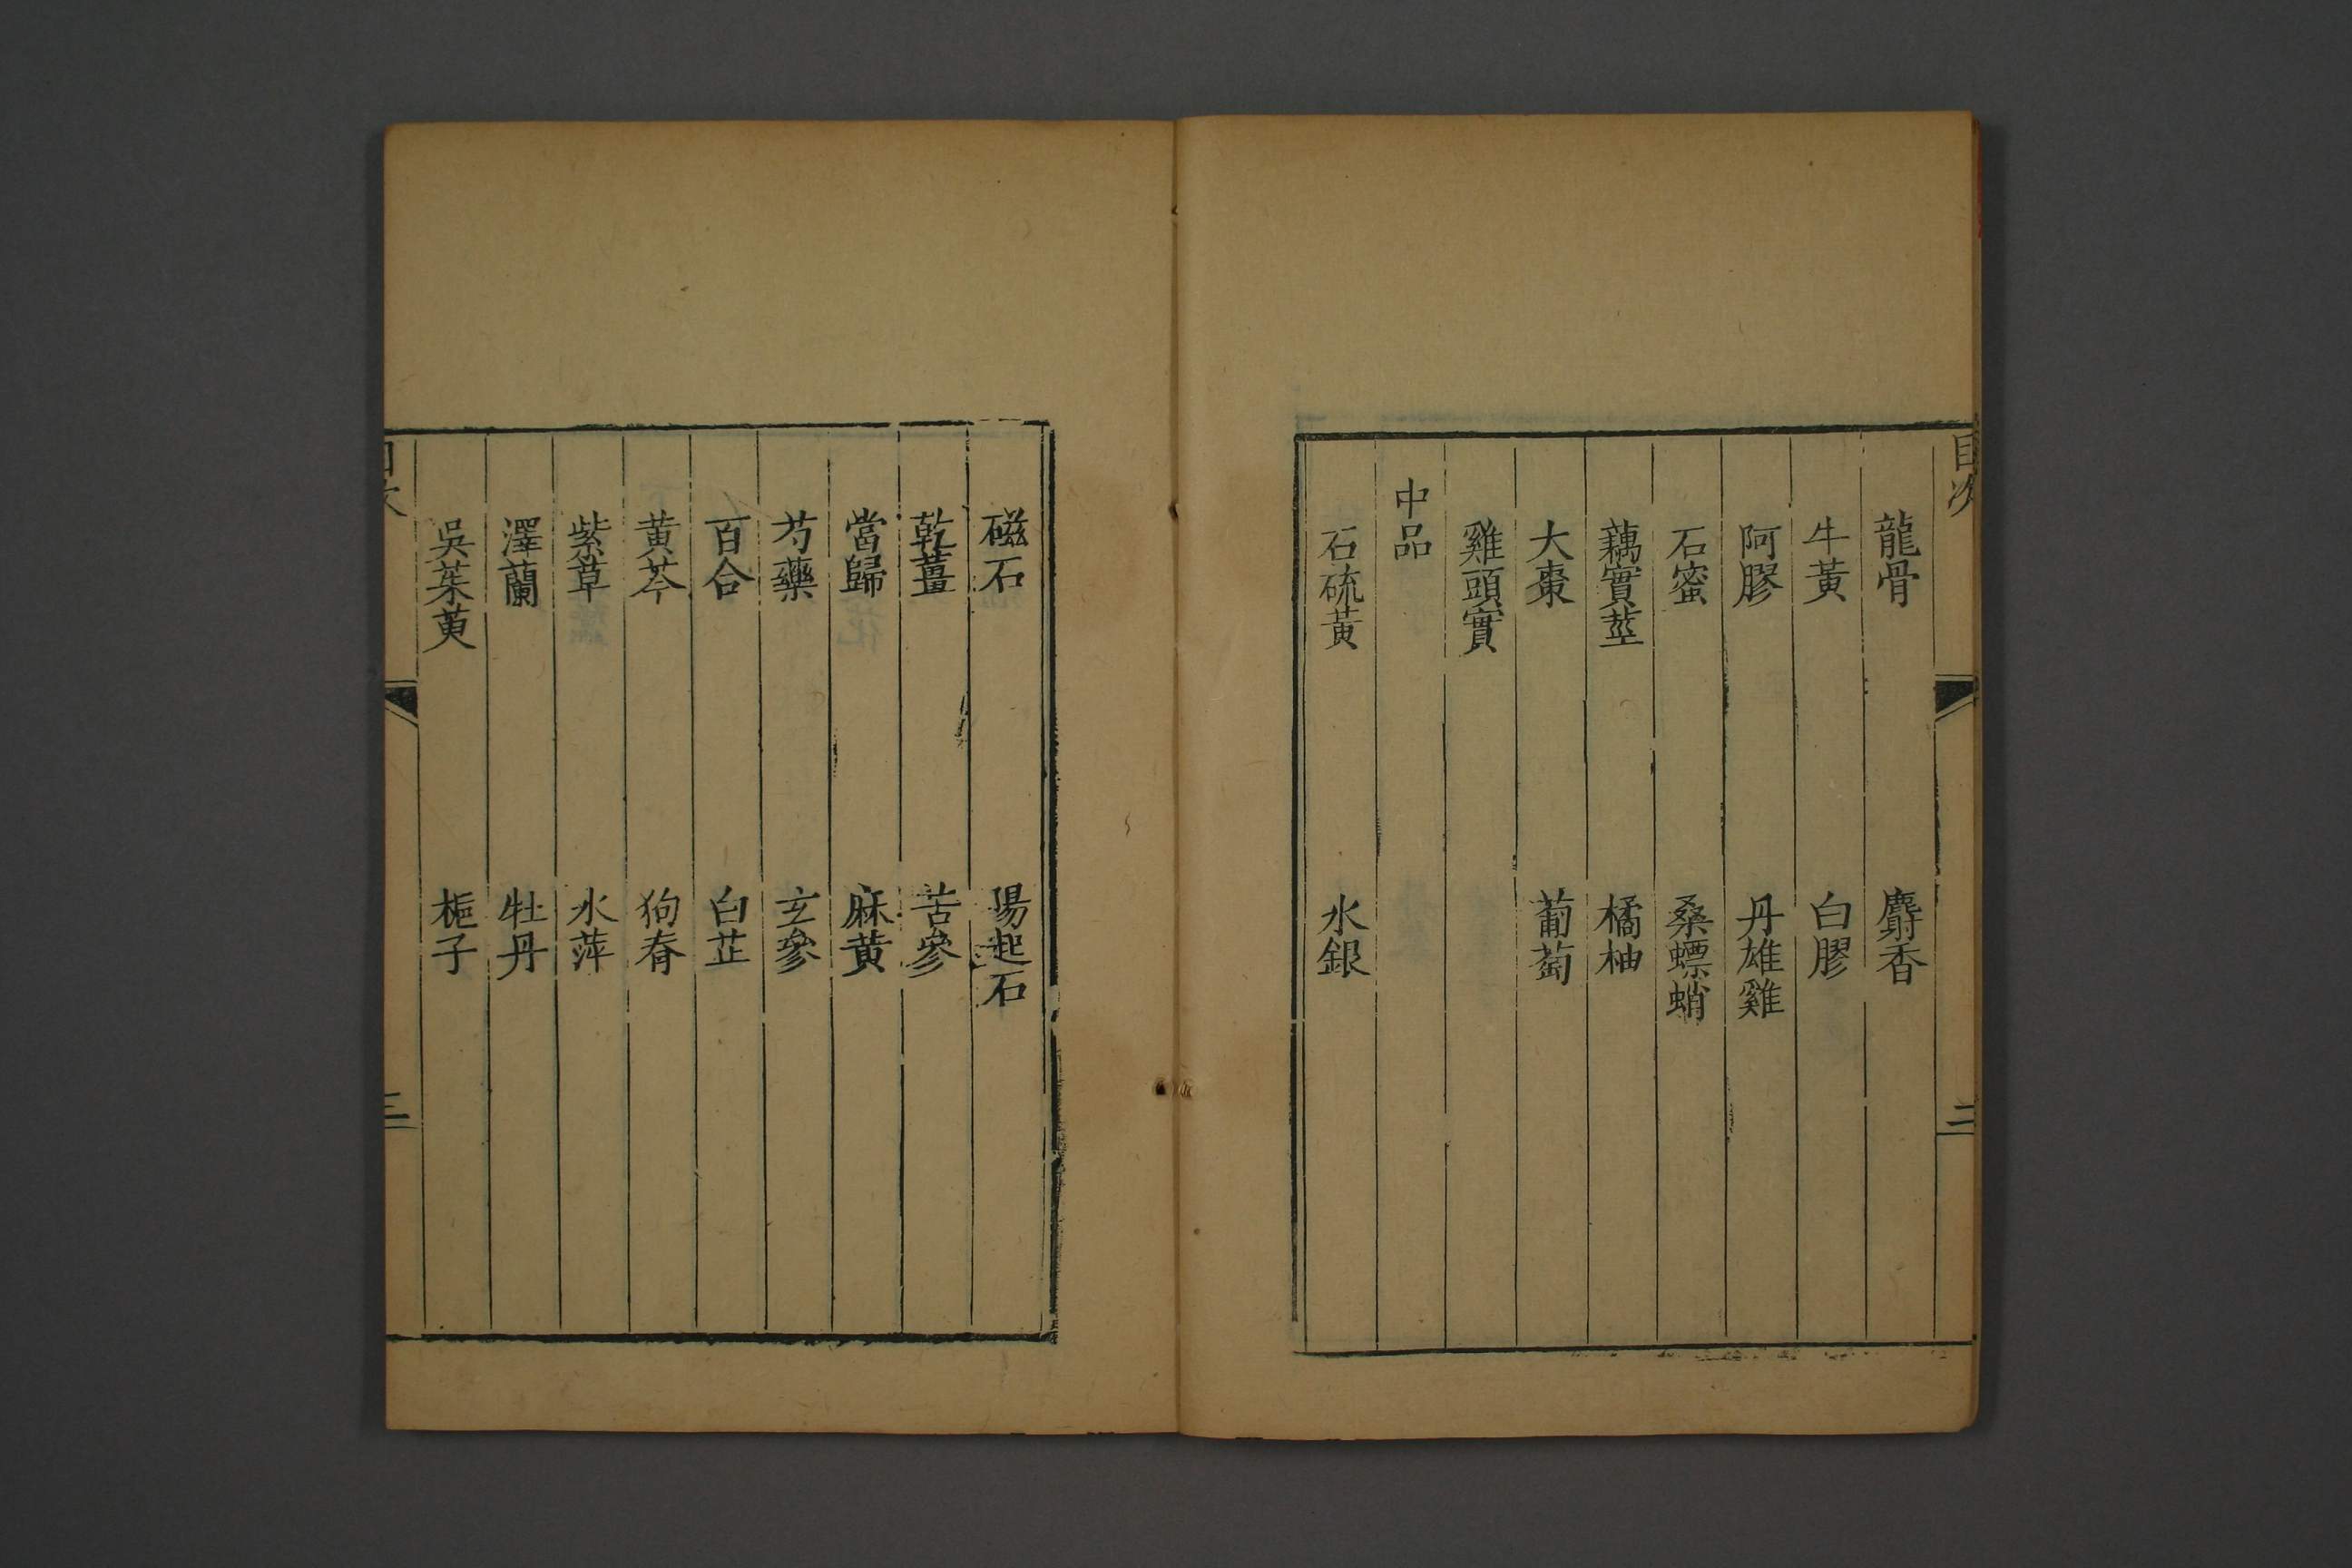 目次
龍骨 麝香
牛黃 白膠
阿膠 丹雄雞
石蜜 桑螵蛸
藕實莖 橘柚
大棗 葡萄
雞頭實
中品
石硫黃 水銀
磁石 陽起石
乾薑 苦參
當歸 麻黃
芍藥 玄參
百合 白芷
黃芩 狗脊
紫草 水萍
澤蘭 牡丹
吳茱萸 梔子
目次
三